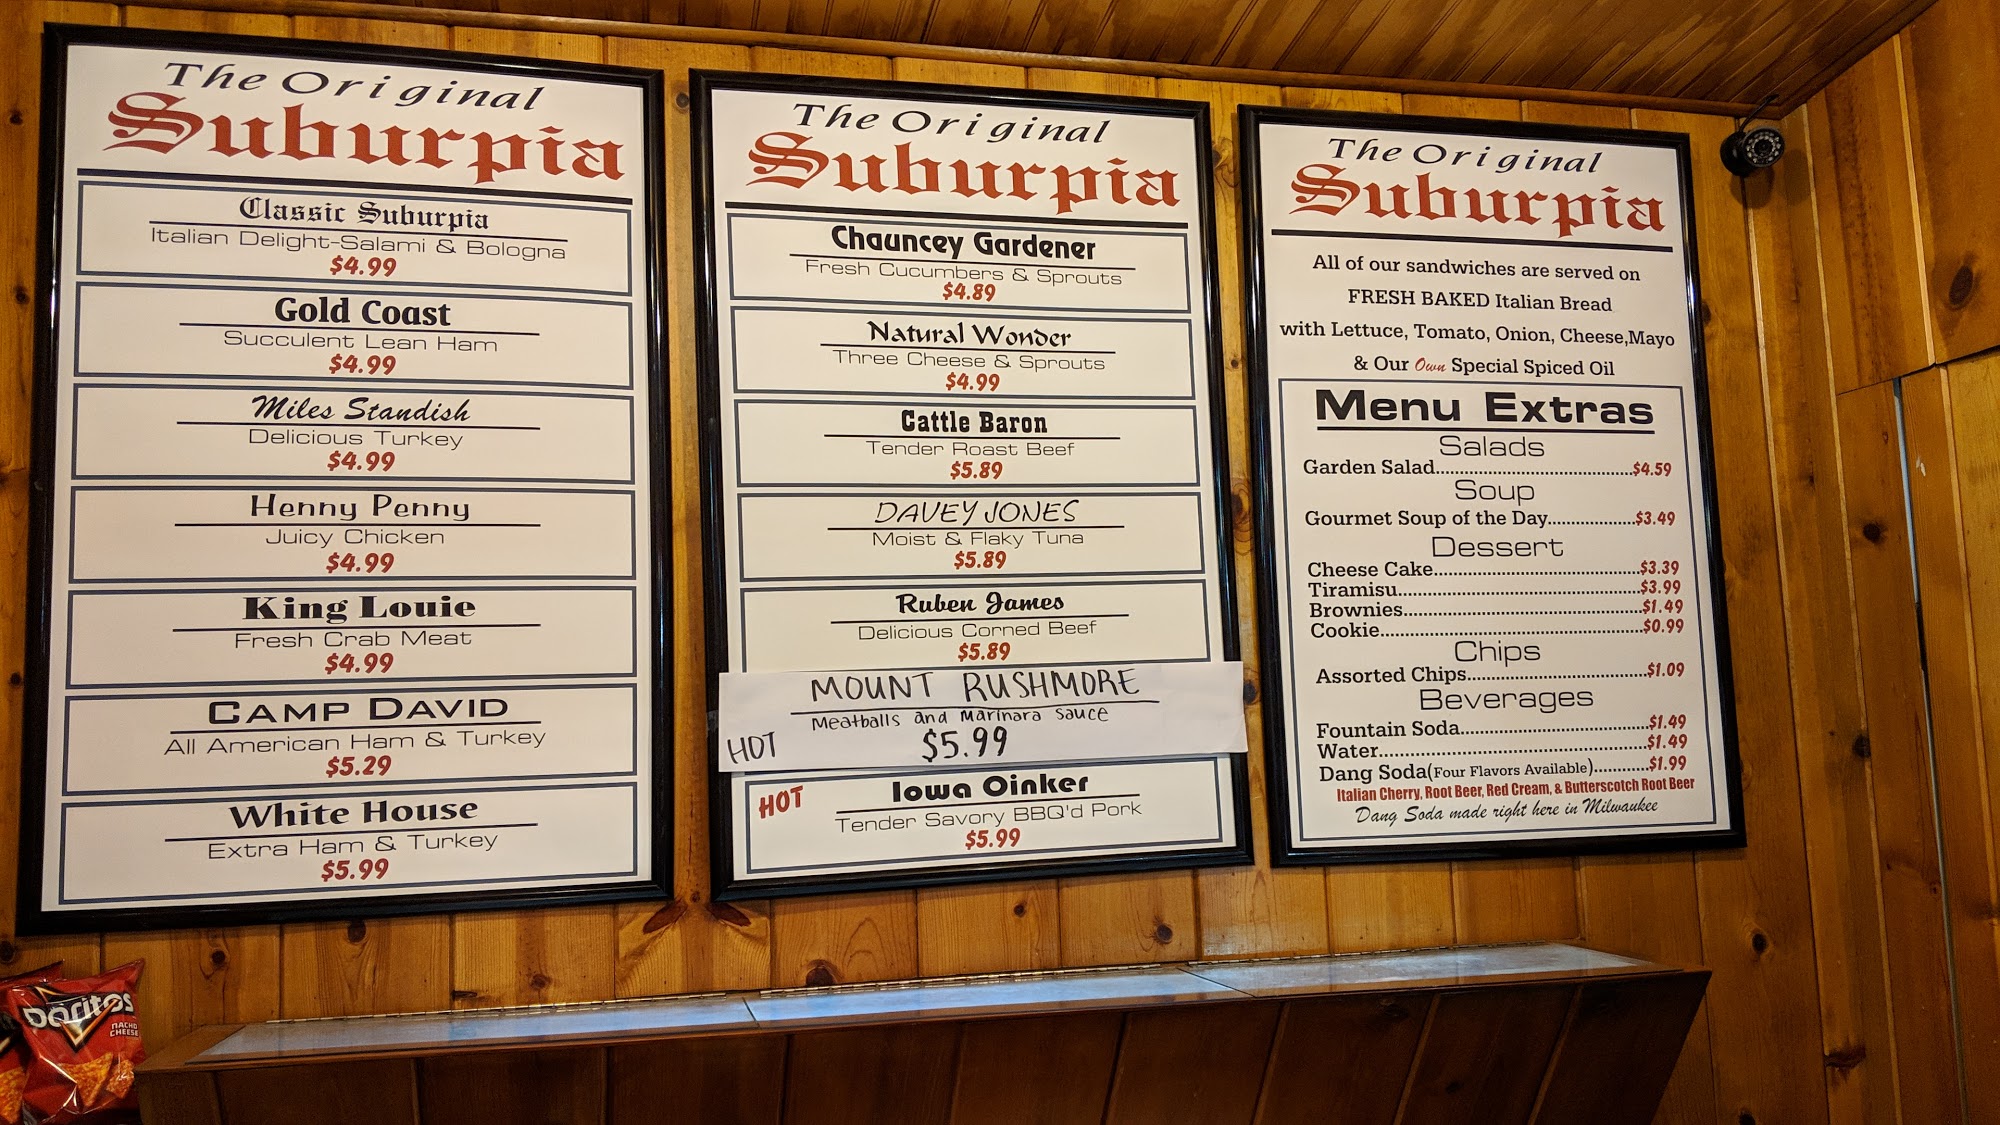 The Original
Suburpia
Classic Suburpia
Italian Delight-Salami & Bologna
$4.99
Gold Coast
Succulent Lean Ham
$4.99
Miles Standish
Delicious Turkey
$4.99
Henny Penny
Juicy Chicken
$4.99
King Louie
Fresh Crab Meat
$4.99
CAMP DAVID
All American Ham & Turkey
$5.29
White House
Extra Ham & Turkey
$5.99
The Original
Suburpia
Chauncey Gardener
Fresh Cucumbers & Sprouts
$4.89
Natural Wonder
Three Cheese & Sprouts
$4.99
Cattle Baron
Tender Roast Beef
$5.89
DAVEY JONES
Moist & Flaky Tuna
$5.89
Ruben James
Delicious Corned Beef
$5.89
MOUNT RUSHMORE
Meatballs and Marinara sauce
HOT $5.99
HOT Iowa Oinker
Tender Savory BBQ'd Pork
$5.99
The Original
Suburpia
All of our sandwiches are served on
FRESH BAKED Italian Bread
with Lettuce, Tomato, Onion, Cheese,Mayo
& Our Own Special Spiced Oil
Menu Extras
Salads
Garden Salad.........................................$4.59
Soup
Gourmet Soup of the Day..................$3.49
Dessert
Cheese Cake...........................................$3.39
Tiramisu..................................................$3.99
Brownies.................................................$1.49
Cookie......................................................$0.99
Chips
Assorted Chips.....................................$1.09
Beverages
Fountain Soda.......................................$1.49
Water.......................................................$1.49
Dang Soda(Four Flavors Available)...........$1.99
Italian Cherry, Root Beer, Red Cream, & Butterscotch Root Beer
Dang Soda made right here in Milwaukee
Doritos
NACHO
CHEESE